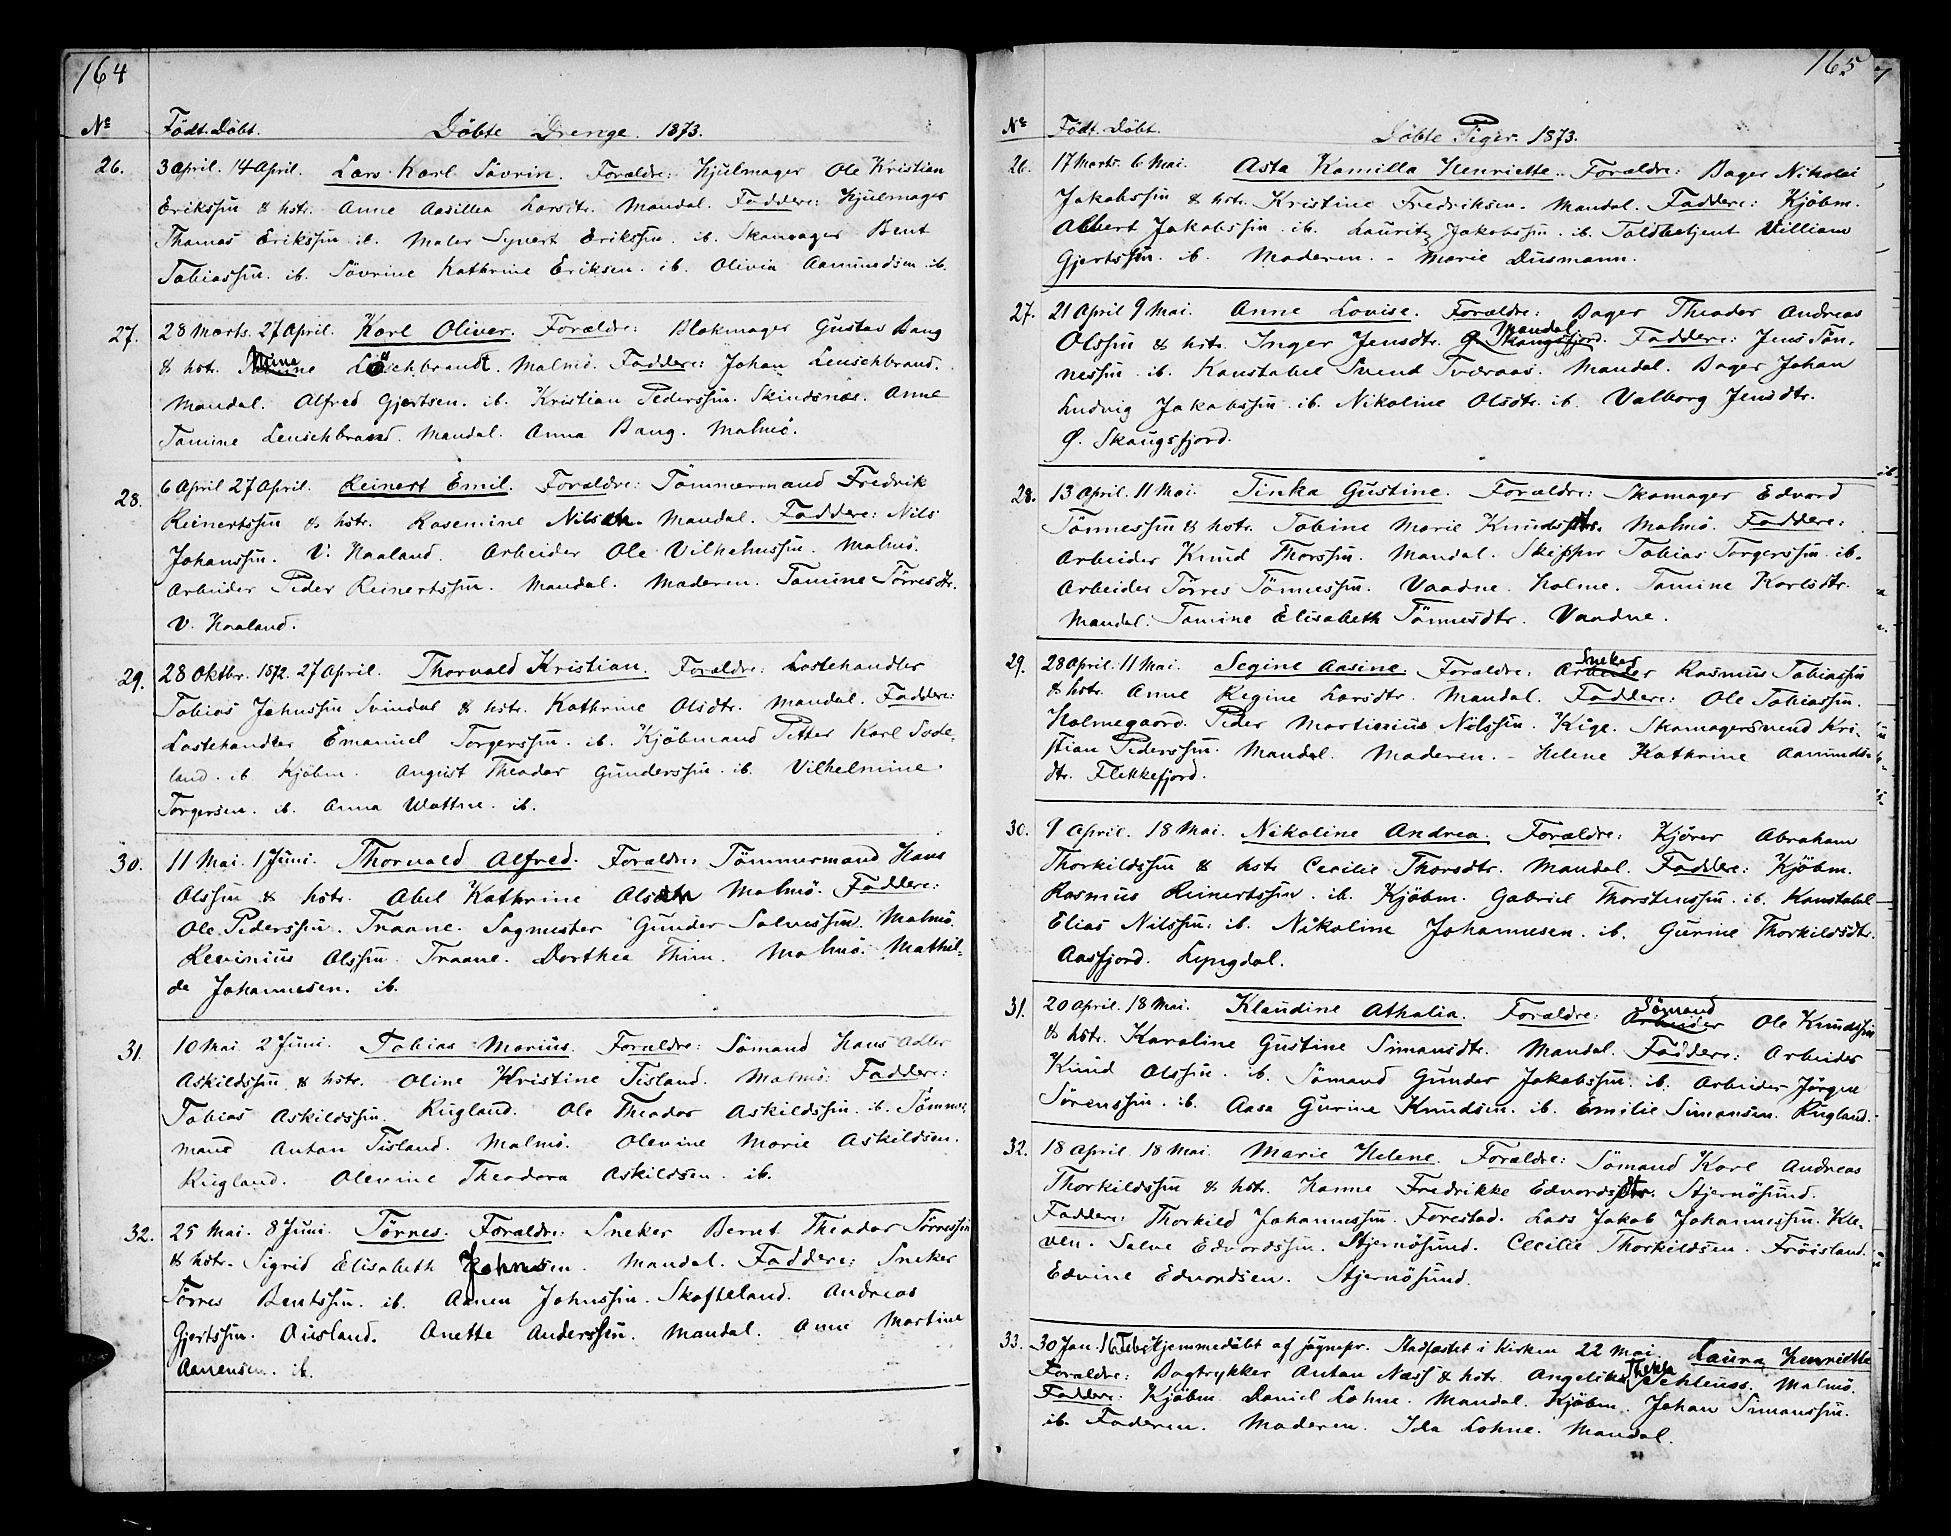 164
№ Födt. Döbt. Döbte Drenge. 1873.
26. 3 April. 14 April. Lars Karl Sövrin. Forældre: Hjulmager Ole Kristian
Erikssøn & hstr. Anne Aasillea Larsdtr. Mandal. Faddere: Hjulmager
Thomas Erikssøn ib. Maler Syvert Erikssøn. ib. Skomager Bent
Tobiassøn. ib. Sövrine Kathrine Eriksen. ib. Olivia Aamundsen. ib.
27. 28 Marts. 27 April. Karl Oliver. Forældre: Blokmager Gustav Bang
& hstr. Mine Löschbrandt. Malmö. Faddere: Johan Leuschbrand.
Mandal. Alfred Gjertsen. ib. Kristian Pederssøn. Skindsnes. Anne
Tomine Leuschbrand. Mandal. Anna Bang. Malmö.
28. 6 April 27 April. Reinert Emil. Forældre: Tömmermand Fredrik
Reinertssøn & hstr. Rosemine Nilsdtr. Mandal. Faddere: Nils
Johanssøn. V. Haaland. Arbeider Ole Vilhelmssøn. Malmö.
Arbeider Peder Reinertssøn. Mandal. Moderen. Tomine Törresdtr.
V. Haaland.
29. 28 Oktbr. 1872. 27 April. Thorvald Kristian. Forældre: Lostehandler
Tobias Jahnssøn Svindal & hstr. Kathrine Olsdtr. Mandal. Faddere:
Lostehandler Emanuel Torgerssøn. ib. Kjöbmand Petter Karl Sode-
land. ib. Kjöbm. August Theodor Gunderssøn. ib. Vilhelmine
Torgersen. ib. Anna Wattne. ib.
30. 11 Mai. 1 Juni. Thorvald Alfred. Forældre: Tömmermand Hans
Olssøn & hstr. Abel Kathrine Olsdtr Malmö. Faddere:
Ole Pederssøn. Traane. Sagmester Gunder Salvessøn. Malmö.
Revinius Olssøn. Traane. Dorthea Thim. Malmö. Mathil-
de Johannesen. ib.
31. 10 Mai. 2 Juni. Tobias Marius. Forældre: Sömand Hans Adler
Askildssøn & hstr. Oline Kristine Tisland. Malmö. Faddere:
Tobias Askildssøn. Rugland. Ole Theodor Askildssøn. ib. Tömmer-
mand Anton Tisland. Malmö. Olevine Marie Askildsen.
Rugland. Olevine Theodora Askildsen. ib.
32. 25 Mai. 8 Juni. Törnes. Forældre: Sneker Bernt Theodor Törressøn
& hstr. Sigrid Elisabeth Johnsen. Mandal. Faddere: Sneker
Törres Bentssøn. ib. Aanen Johnssøn. Skofteland. Andreas
Gjertssøn. Ausland. Anette Anderssøn. Mandal. Anne Martine
Aanensen. ib.
165
№ Födt. Döbt. Döbte Piger. 1873.
26. 17 Marts. 6 Mai. Asta Kamilla Henriette. Forældre: Bager Nikolai
Jakobssøn & hstr. Kristine Fredriksen. Mandal. Faddere: Kjöbm.
Albert Jakobssøn. ib. Lauritz Jakobssøn. ib. Toldbetjent Villiam
Gjertssøn. ib. Moderen. - Marie Dusmann.
27. 21 April 9 Mai. Anne Lovise. Forældre: Bager Theodor Andreas
Olssøn & hstr. Inger Jensdtr. Ø. Skougsfjord. Mandal Faddere: Jens Tön-
nessøn. ib. Konstabel Svend Tveraas. Mandal. Bager Johan
Ludvig Jakobssøn. ib. Nikoline Olsdtr. ib. Valborg Jensdtr.
Ø. Skougsfjord.
28. 13 April. 11 Mai. Tinka Gustine. Forældre: Skomager Edvard
Tönnessøn & hstr. Tobine Marie Knudsdtr. Malmö. Faddere:
Arbeider Knud Thorssøn. Mandal. Skipper Tobias Torgerssøn. ib.
Arbeider Törres Tönnessøn. Vaadne. Holme. Tomine Karlsdtr.
Mandal. Tomine Elisabeth Tönnesdtr. Vaadne.
29. 28 April. 11 Mai. Segine Aasine. Forældre: Arbeider Sneker Rasmus Tobiassøn
& hstr. Anne Regine Larsdtr. Mandal. Faddere: Ole Tobiassøn.
Holmegaard. Peder Martinius Nilssøn. Kige. Skomagersvend Kri-
stian Pederssøn. Mandal. Moderen. - Helene Kathrine Aamunds-
dtr. Flekkefjord.
30. 9 April. 18 Mai. Nikoline Andrea. Forældre: Kjörer Abraham
Thorkildssøn & hstr Cecilie Thorsdtr. Mandal. Faddere: Kjöbm.
Rasmus Reinertssøn. ib. Kjöbm. Gabriel Thorstenssøn. ib. Konstabel
Elias Nilssøn. ib. Nikoline Johannesen. ib. Gurine Thorkildsdtr.
Aasfjord. Lyngdal.
31. 20 April. 18 Mai. Klaudine Athalia. Forældre: Arbeider Sömand Ole Knudssøn
& hstr. Karoline Gustine Simonsdtr. Mandal. Faddere: Arbeider
Knud Olssøn. ib. Sömand Gunder Jakobssøn. ib. Arbeider Jörgen
Sörenssøn. ib. Aasa Gurine Knudsen. ib. Emilie Simonsen. Rugland.
32. 18 April. 18 Mai. Marie Helene. Forældre: Sömand Karl Andreas
Thorkildssøn & hstr. Hanne Fredrikke Edvardsdtr. Stjernösund.
Faddere: Thorkild Johannessøn. Forestad. Lars Jakob Johannessøn. Kle-
ven. Salve Edvardssøn. Stjernösund. Cecilie Thorkildsen. Fröisland.
Edvine Edvardsen. Stjernösund.
33. 30 Jan. 16 Febr. Hjemmedöbt af sognepr. Stadfæstet i kirken 22 Mai. Laura Henriette
Forældre: Bogtrykker Anton Næss & hstr. Angelika Thekla Schleuss. Malmö.
Faddere: Kjöbm. Daniel Lohne. Mandal. Kjöbm. Johan Simonssøn.
ib. Faderen. Moderen. Ida Lohne. Mandal.